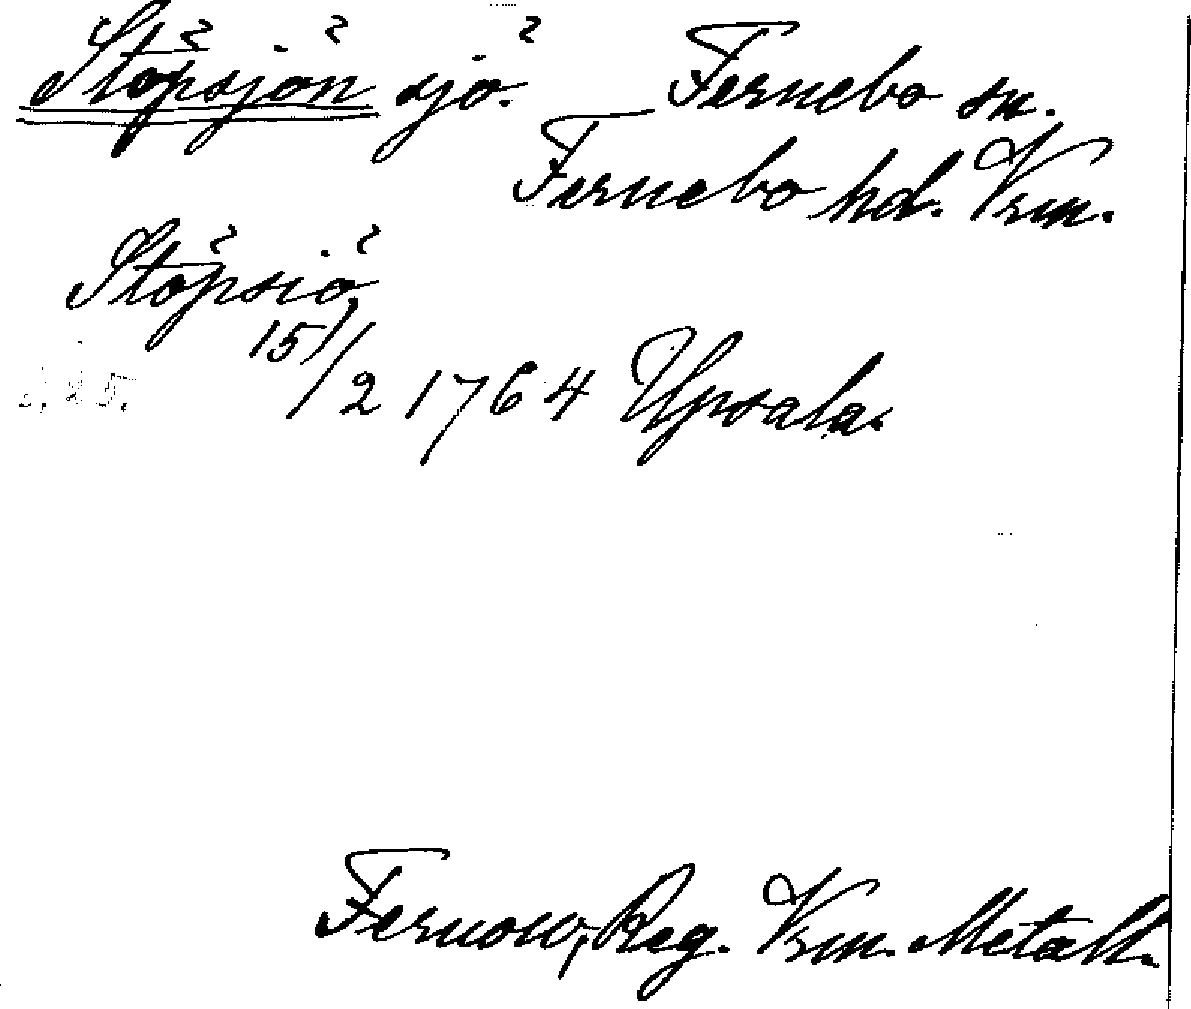 Stöpsjön sjö. Fernebo sn.
Fernebo hd. Vrm.
Stöpsiö,
15/2 1764 Upsala.
Fernow, Reg. Vrm. Metall.